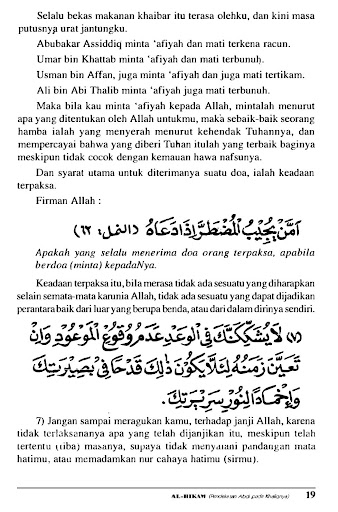 Selalu bekas makanan khaibar itu terasa olehku, dan kini masa
putusnya urat jantungku.
Abubakar Assiddiq minta 'afiyah dan mati terkena racun.
Umar bin Khattab minta 'afiyah dan mati terbunuh.
Usman bin Affan, juga minta 'afiyah dan mati tertikam.
Ali bin Abi Thalib minta 'afiyah juga mati terbunuh.
Maka bila kau minta 'afiyah kepada Allah, mintalah menurut
apa yang ditentukan oleh Allah untukmu, maka sebaik-baik seorang
hamba ialah yang menyerah menurut kehendak Tuhannya, dan
mempercayai bahwa yang diberi Tuhan itulah yang terbaik baginya
meskipun tidak cocok dengan kemauan hawa nafsunya.
Dan syarat utama untuk diterimanya suatu doa, ialah keadaan
terpaksa.
Firman Allah :
اَمَّنْ يُجِيْبُ الْمُضْطَرَّ اِذَا دَعَاهُ (النمل: ٦٢)
Apakah yang selalu menerima doa orang terpaksa, apabila
berdoa (minta) kepadaNya.
Keadaan terpaksa itu, bila merasa tidak ada sesuatu yang diharapkan
selain semata-mata karunia Allah, tidak ada sesuatu yang dapat dijadikan
perantara baik dari luar yang berupa benda, atau dari dalam dirinya sendiri.
(٧) لَا يُشَكِّكَنَّكَ فِى الْوَعْدِ عَدَمُ وُقُوْعِ الْمَوْعُوْدِ وَاِنْ
تَعَيَّنَ زَمَنُهُ لِئَلَّا يَكُوْنَ ذٰلِكَ قَدْحًا فِى بَصِيْرَتِكَ
وَاِخْمَادًا لِنُوْرِ سَرِيْرَتِكَ.
7) Jangan sampai meragukan kamu, terhadap janji Allah, karena
tidak terlaksananya apa yang telah dijanjikan itu, meskipun telah
tertentu (tiba) masanya, supaya tidak menyuramı pandangan mata
hatimu, atau memadamkan nur cahaya hatimu (sirmu).
AL-HIKAM (Pendekatan Abdi pada Khaliqnya) 19